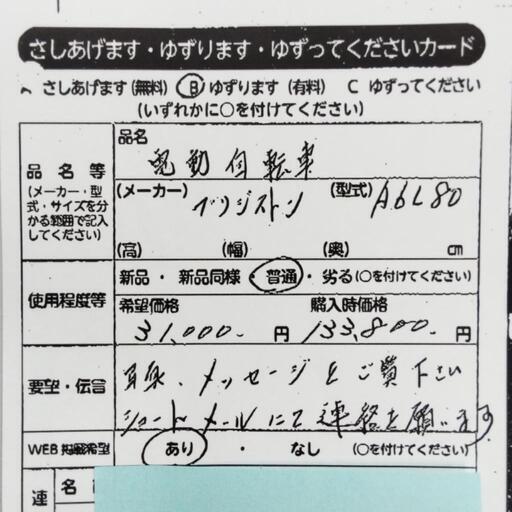 さしあげます・ゆずります・ゆずってくださいカード
A さしあげます(無料) B ゆずります(有料) C ゆずってください
(いずれかに○を付けてください)
品名等
(メーカー・型式・サイズを分かる範囲で記入してください)
品名
電動自転車
(メーカー) ブリジストン (型式) A6L80
(高) (幅) (奥) cm
使用程度等
新品・新品同様・普通・劣る(○を付けてください)
希望価格 購入時価格
31,000- 円 133,800- 円
要望・伝言
メッセージをご覧下さい
ショートメールにて連絡を願います
WEB掲載希望 あり・なし(○を付けてください)
連 名